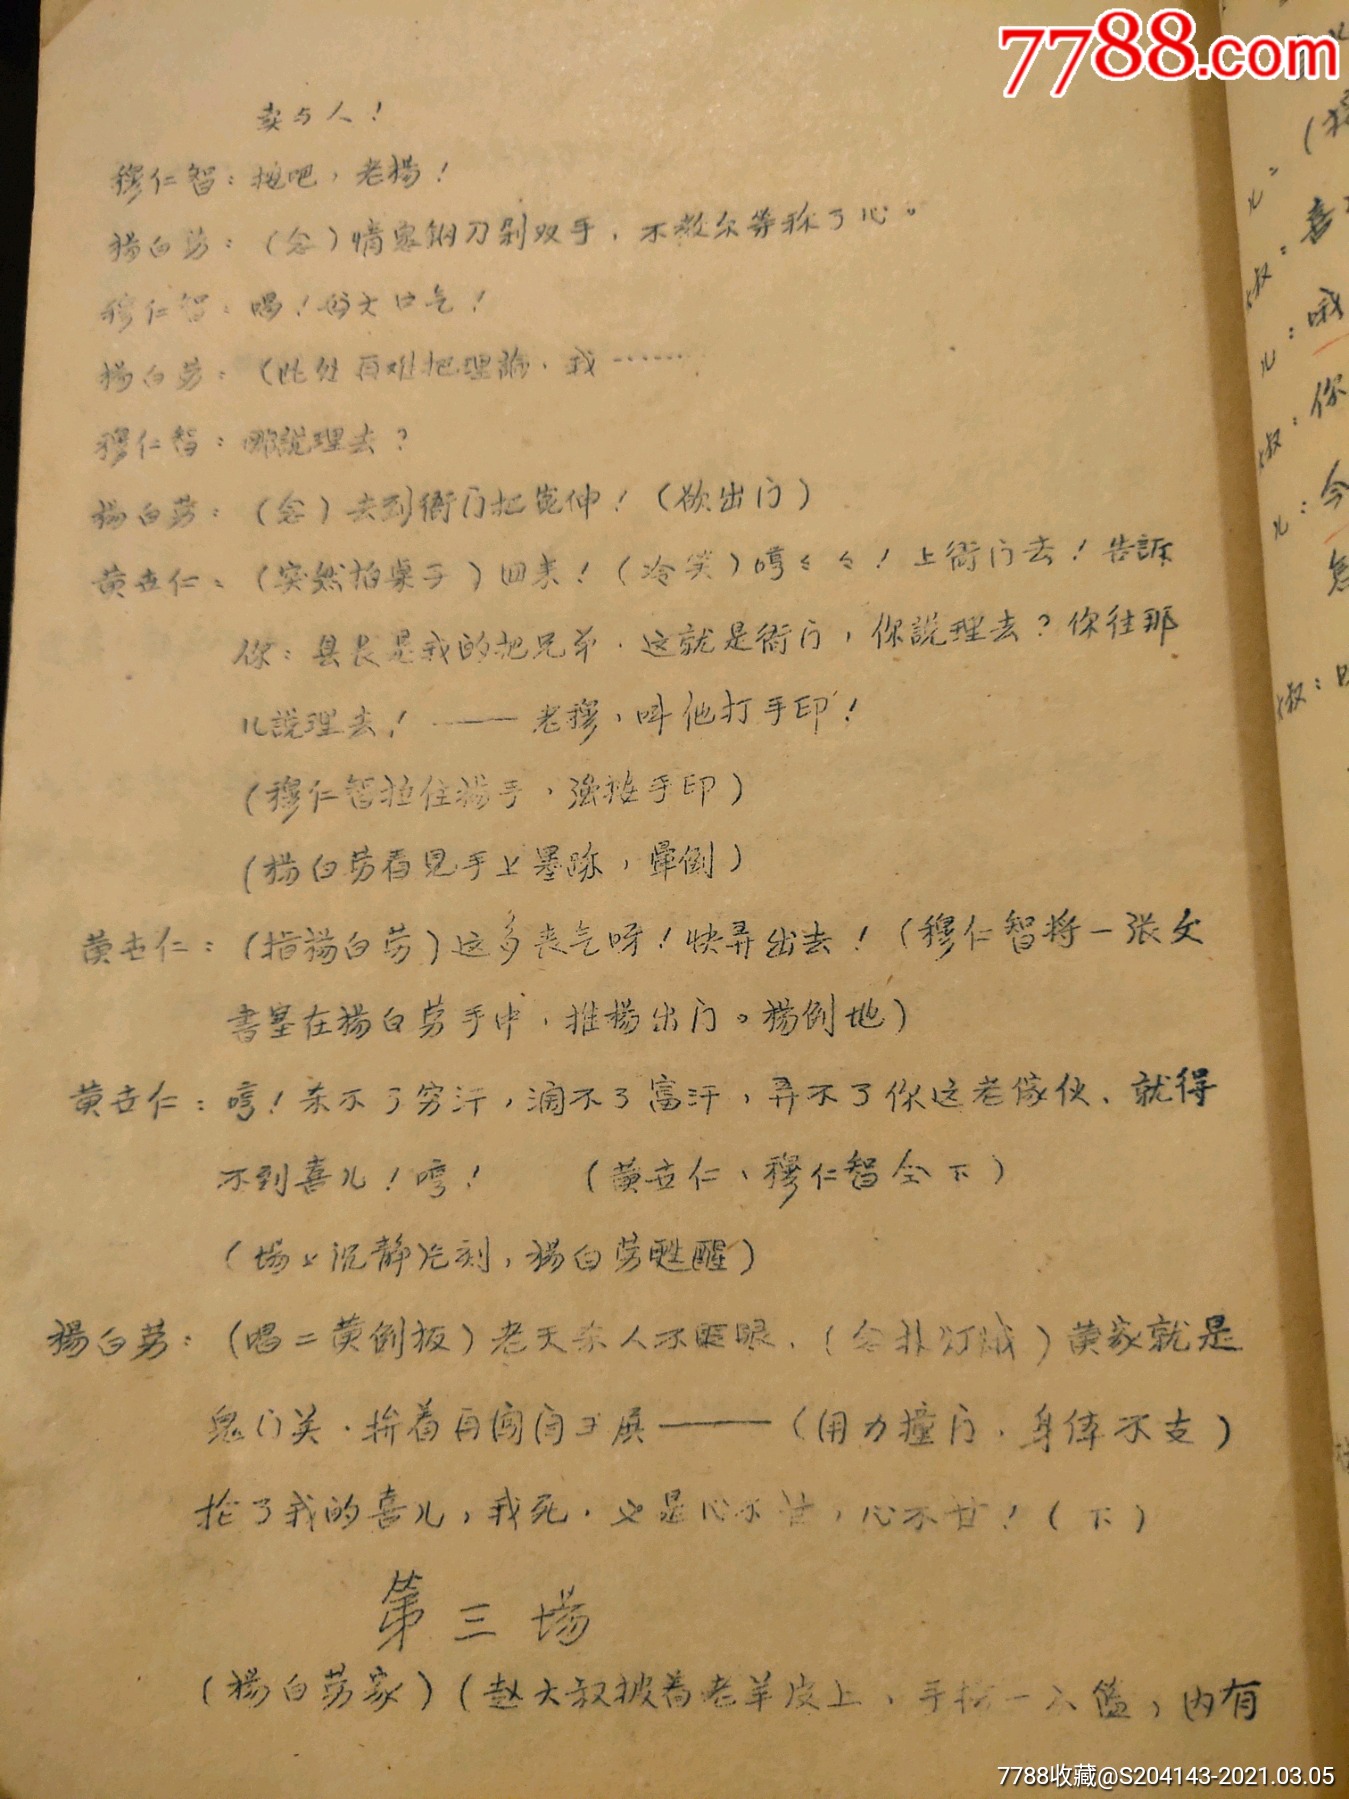 7788.com
卖与人！
穆仁智：按吧，老楊！
楊白劳：（念）情愿鋼刀剁双手，不教尔等称了心。
穆仁智：嗬！好大口气！
楊白劳：（此处再难把理論，我……
穆仁智：哪說理去？
楊白劳：（念）去到衙门把冤伸！（欲出门）
黄世仁：（突然拍桌子）回来！（冷笑）哼々々！上衙门去！告訴
你：县长是我的把兄弟．这就是衙门，你說理去？你往那
儿說理去！——老穆，叫他打手印！
（穆仁智拉住楊手，强按手印）
（楊白劳看見手上墨跡，暈倒）
黄世仁：（指楊白劳）这多丧气呀！快弄出去！（穆仁智将一张文
書塞在楊白劳手中，推楊出门。楊倒地）
黄世仁：哼！杀不了穷汗，满不了富汗，弄不了你这老傢伙、就得
不到喜儿！哼！（黄世仁、穆仁智仝下）
（場上沉静片刻，楊白劳甦醒）
楊白劳：（唱二黄倒板）老天杀人不眨眼，（念扑灯蛾）黄家就是
鬼门关．拚着再闯闫王殿——（用力撞门．身体不支）
抢了我的喜儿，我死．也是心不甘，心不甘！（下）
第三場
（楊白劳家）（赵大叔披着老羊皮上，手 一 篮，内有
（楊
儿：
叔：喜
儿：哦
叔：你
儿：今
叔：
7788收藏@S204143-2021.03.05